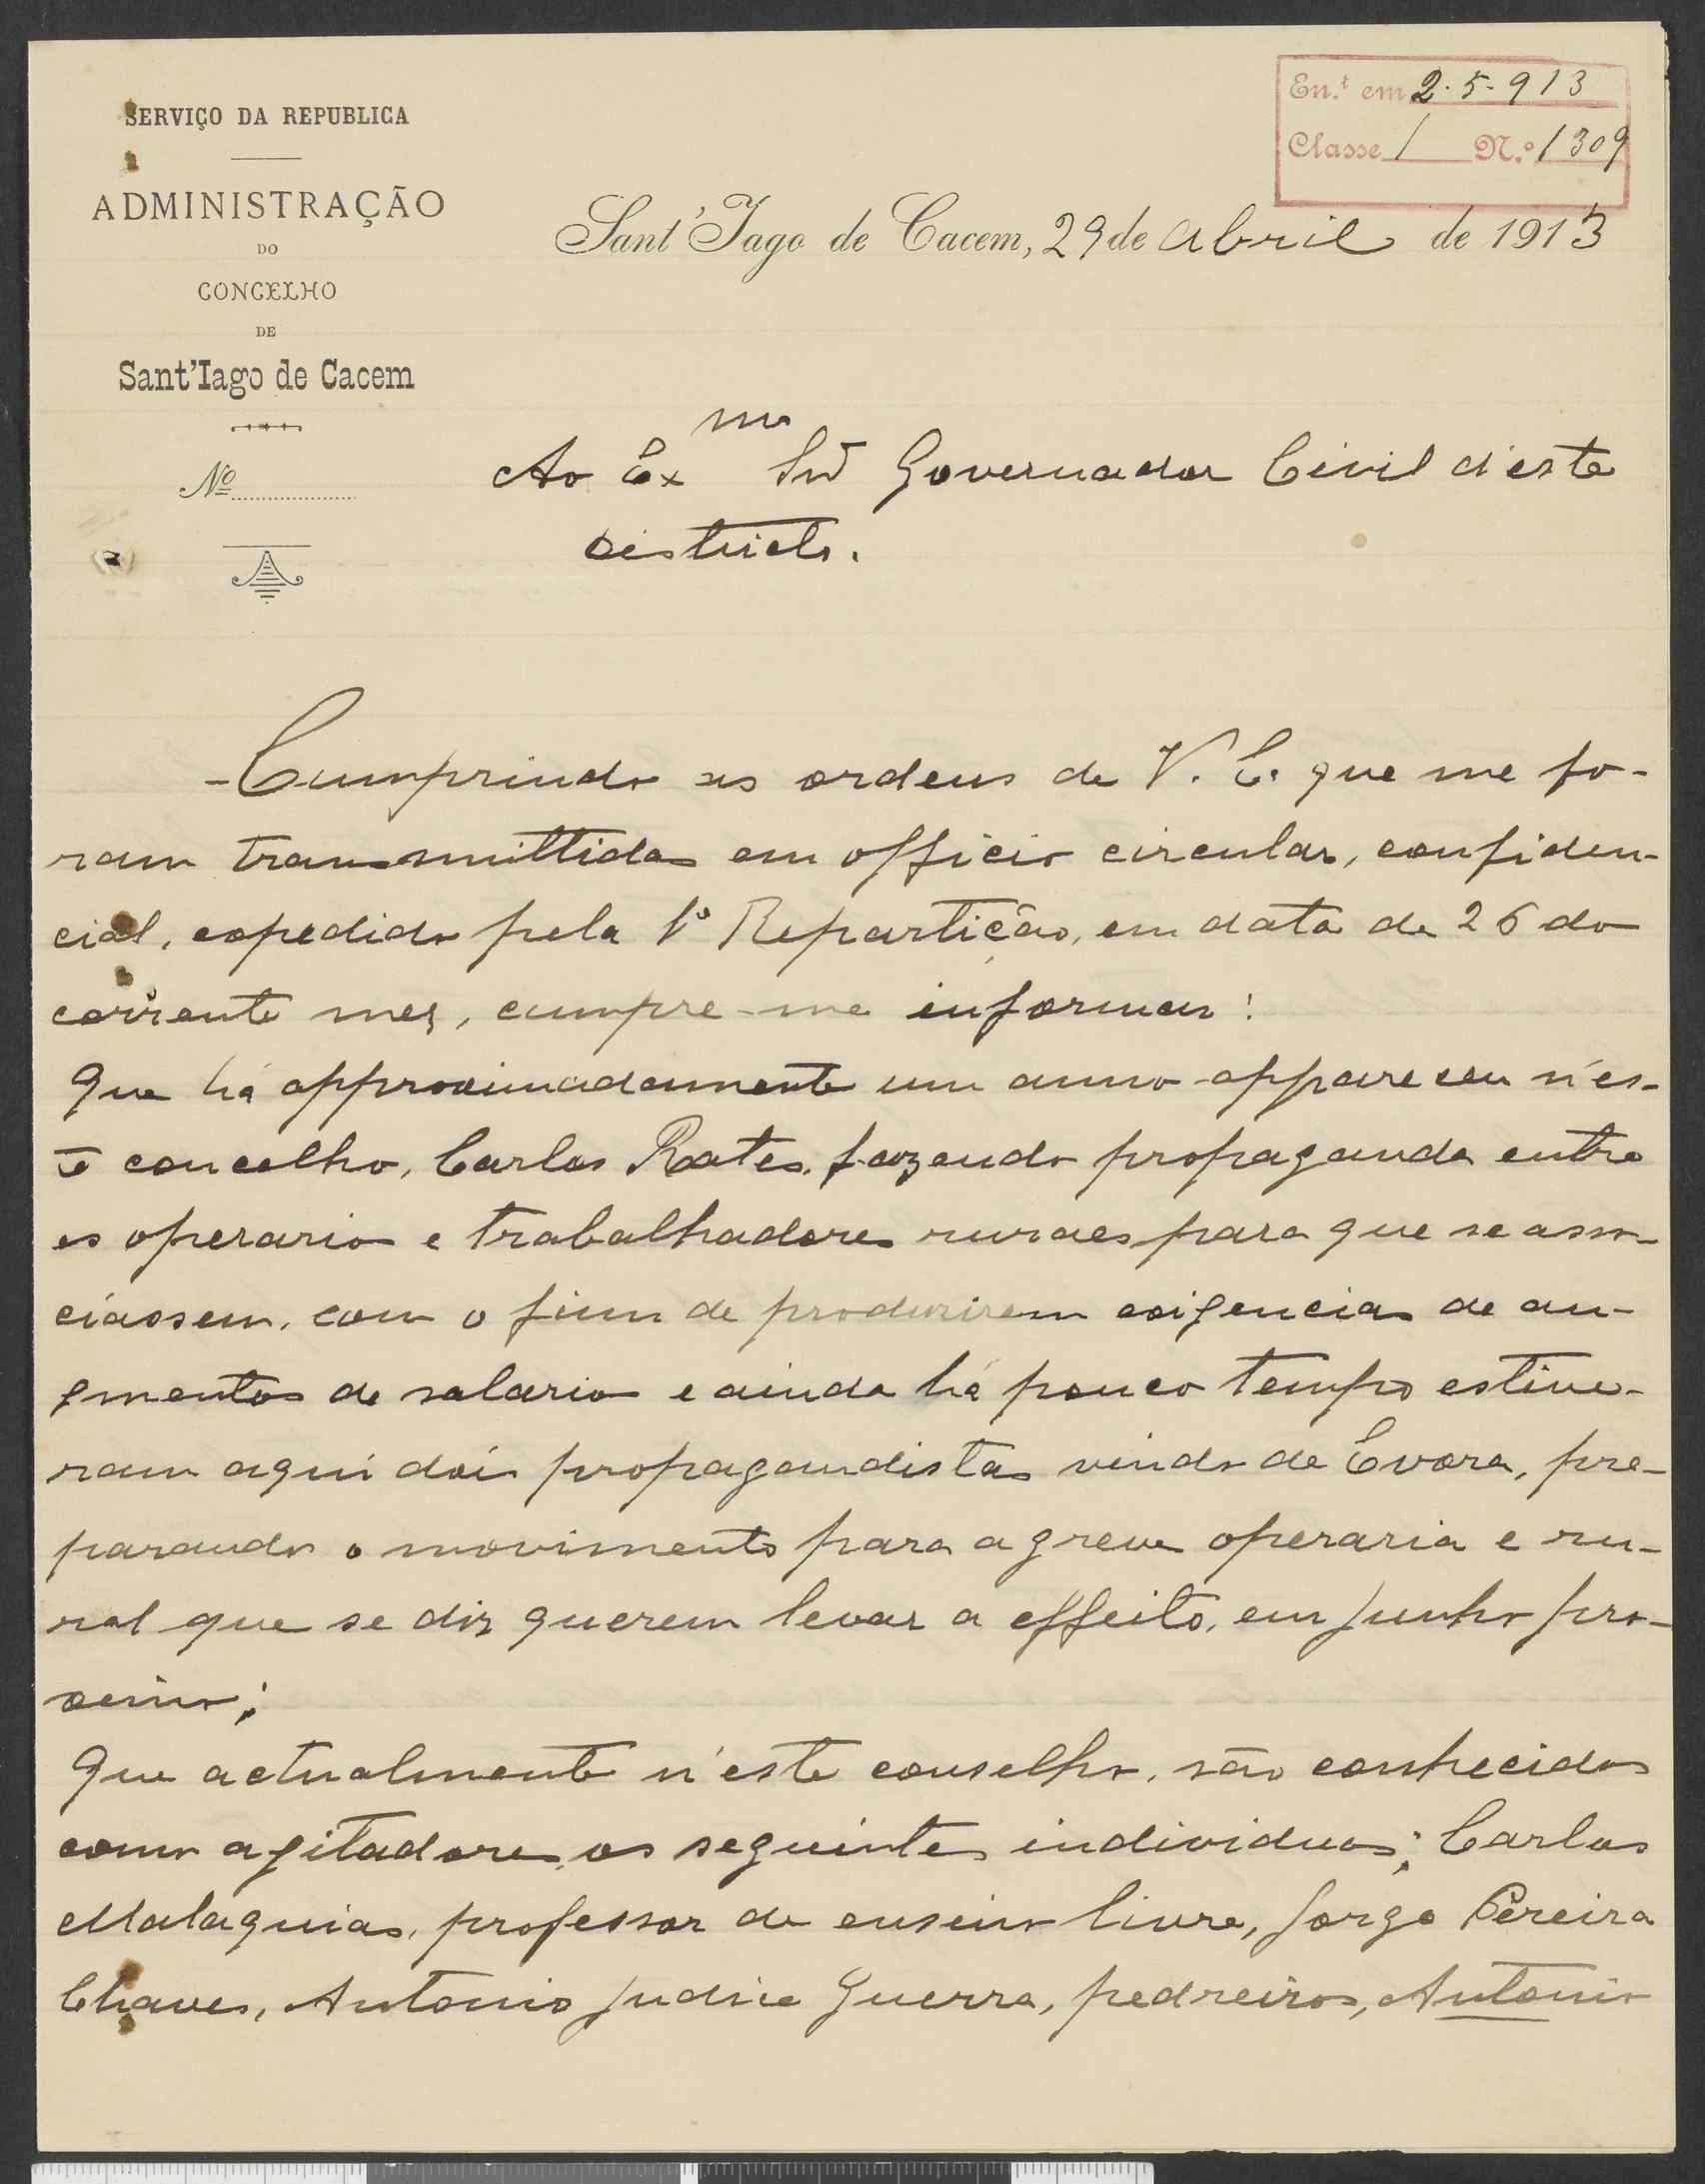 Ent. em 2-5-913
Classe 1 N.º 1309
SERVIÇO DA REPUBLICA
ADMINISTRAÇÃO
DO
CONCELHO
DE
Sant'Iago de Cacem
Nº
Sant'Iago de Cacem, 29 de Abril de 1913
Ao Exmo Snr Governador Civil d'este
districto.
- Cumprindo as ordens de V. E. que me fo-
ram transmittidas em officio circular, confiden-
cial, expedido pela 1ª Repartição, em data de 26 do
corrente mez, cumpre-me informar:
Que há approximadamente um anno appareceu n'es-
te concelho, Carlos Rates, fazendo propaganda entre
os operarios e trabalhadores ruraes para que se asso-
ciassem, com o fim de produzirem exigencias de au-
gmentos de salarios e ainda há pouco tempo estive-
ram aqui dois propagandistas vindo de Evora, pre-
parando o movimento para a greve operaria e ru-
ral que se diz querem levar a effeito, em Junho pro-
ximo;
Que actualmente n'este conselho, são conhecidos
como agitadores, os seguintes individuos; Carlos
Malaquias, professor de ensino livre, Jorge Pereira
Chaves, Antonio Judice Guerra, pedreiros, Antonio